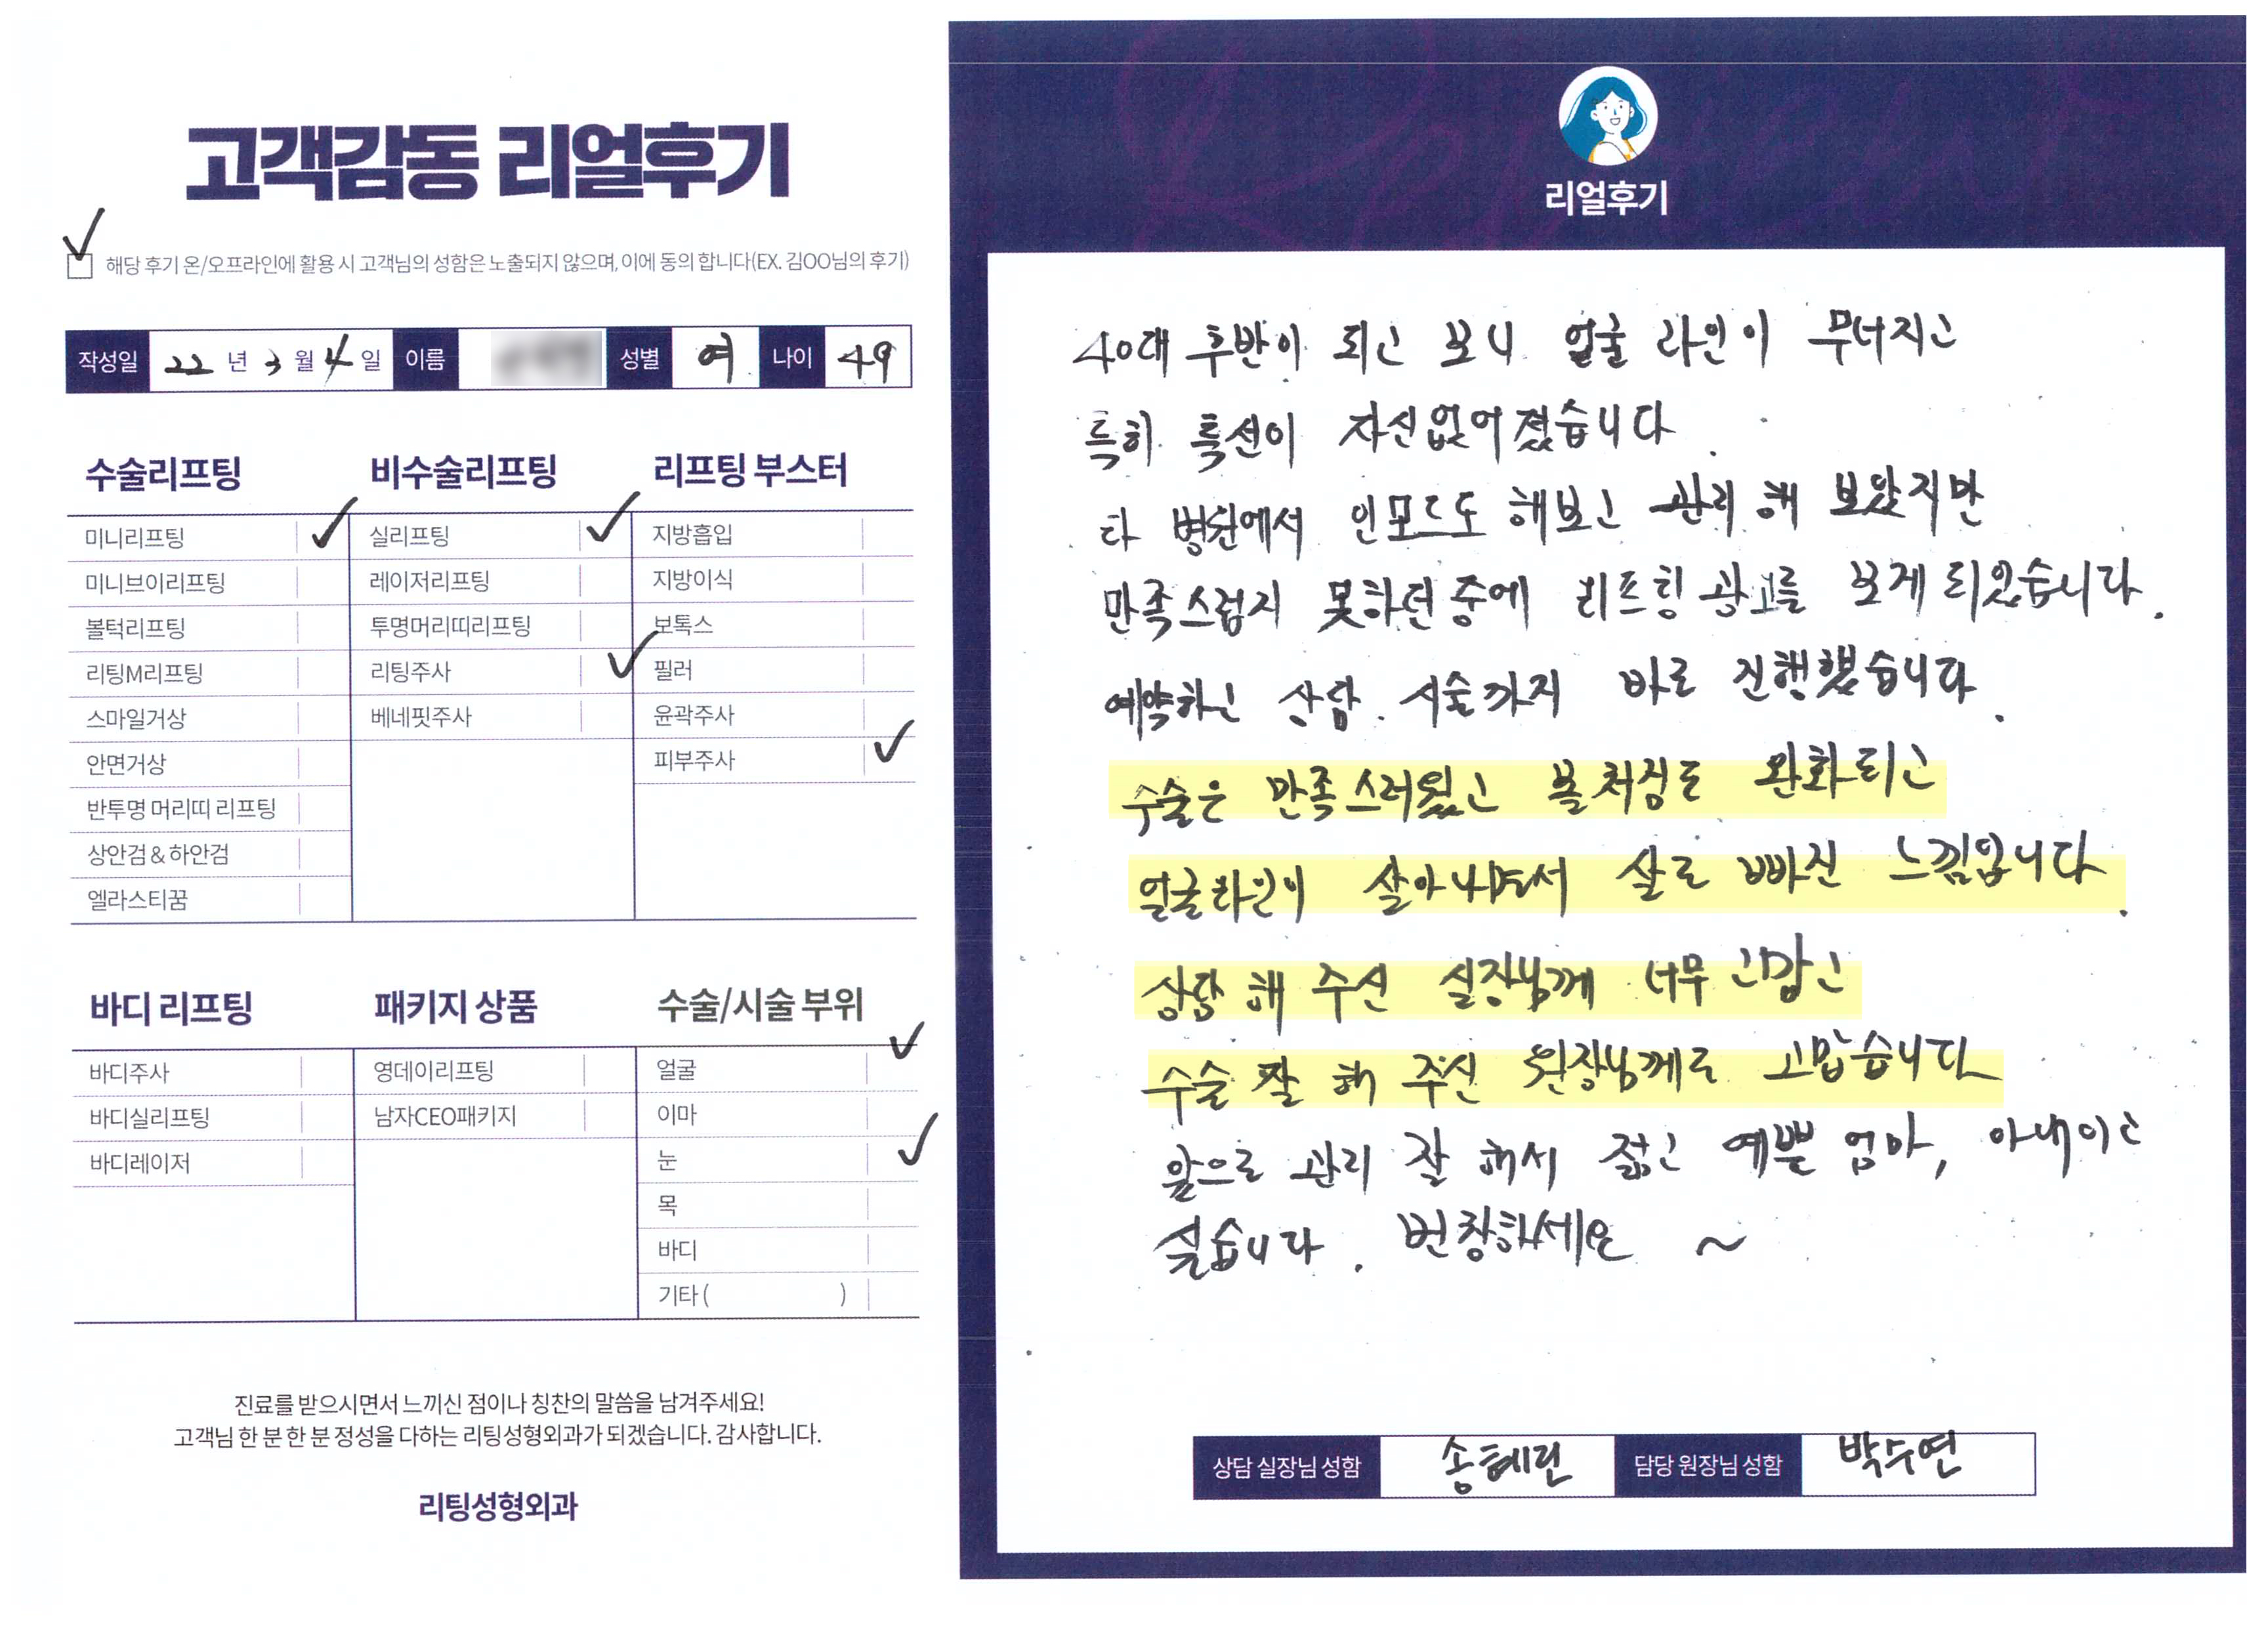 고객감동 리얼후기
해당 후기 온/오프라인에 활용 시 고객님의 성함은 노출되지 않으며, 이에 동의 합니다(EX. 김OO님의 후기)
작성일 22 년 3 월 4 일 이름 성별 여 나이 49
수술리프팅
미니리프팅
미니브이리프팅
볼턱리프팅
리팅M리프팅
스마일거상
안면거상
반투명 머리띠 리프팅
상안검 & 하안검
엘라스티꿈
비수술리프팅
실리프팅
레이저리프팅
투명머리띠리프팅
리팅주사
베네핏주사
리프팅 부스터
지방흡입
지방이식
보톡스
필러
윤곽주사
피부주사
바디 리프팅
바디주사
바디실리프팅
바디레이저
패키지 상품
영데이리프팅
남자CEO패키지
수술/시술 부위
얼굴
이마
눈
목
바디
기타 ( )
진료를 받으시면서 느끼신 점이나 칭찬의 말씀을 남겨주세요!
고객님 한 분 한 분 정성을 다하는 리팅성형외과가 되겠습니다. 감사합니다.
리팅성형외과
리얼후기
40대 후반이 되고 보니 얼굴 라인이 무너지고
특히 턱선이 자신없어졌습니다.
타 병원에서 인모드도 해보고 관리 해 보았지만
만족스럽지 못하던중에 리프팅 광고를 보게 되었습니다.
예약하고 상담. 시술까지 바로 진행했습니다.
수술은 만족스러웠고 볼처짐도 완화되고
얼굴라인이 살아나면서 살도 빠진 느낌입니다.
상담 해 주신 실장님께 너무 고맙고
수술 잘 해 주신 원장님께도 고맙습니다
앞으로 관리 잘 해서 젊고 예쁜 엄마, 아내이고
싶습니다. 번창하세요 ~
상담 실장님 성함 송혜린 담당 원장님 성함 박수연